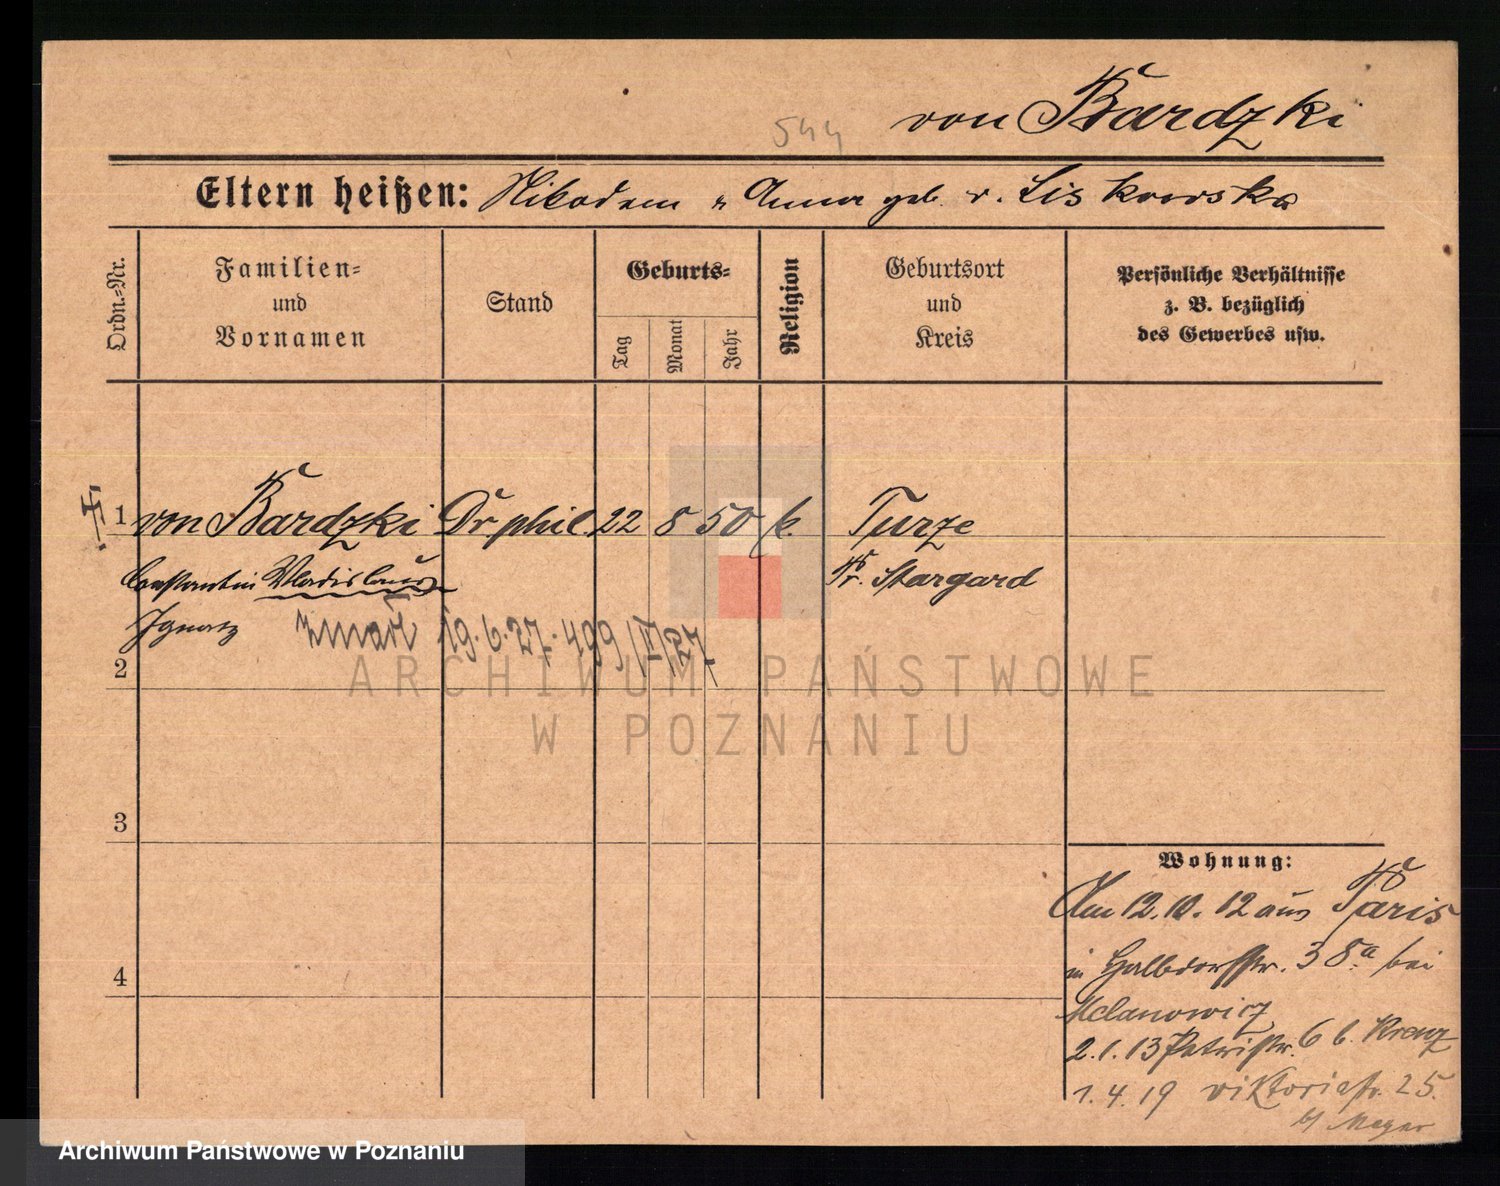 von Bardzki
544
Eltern heißen: Nikodem u Anna geb. v. Liskowska
Ordn.-Nr.
Familien-
und
Vornamen
Stand
Geburts-
Tag
Monat
Jahr
Religion
Geburtsort
und
Kreis
Persönliche Verhältnisse
z. B. bezüglich
des Gewerbes usw.
1 von Bardzki Dr. phil. 22 8 50 k. Turze
Constantin Vladislaus Pr. Stargard
Ignatz
zmarł 19.6.27. 499/III/27
2
ARCHIWUM PAŃSTWOWE
W POZNANIU
3
4
Wohnung:
Am 12.10.12 aus Paris
in Halbdorfstr. 38a bei
Melanowicz
2.1.13 Petristr. 6 b. Kreuz
1.4.19 Viktoriastr. 25.
b/ Meyer
Archiwum Państwowe w Poznaniu